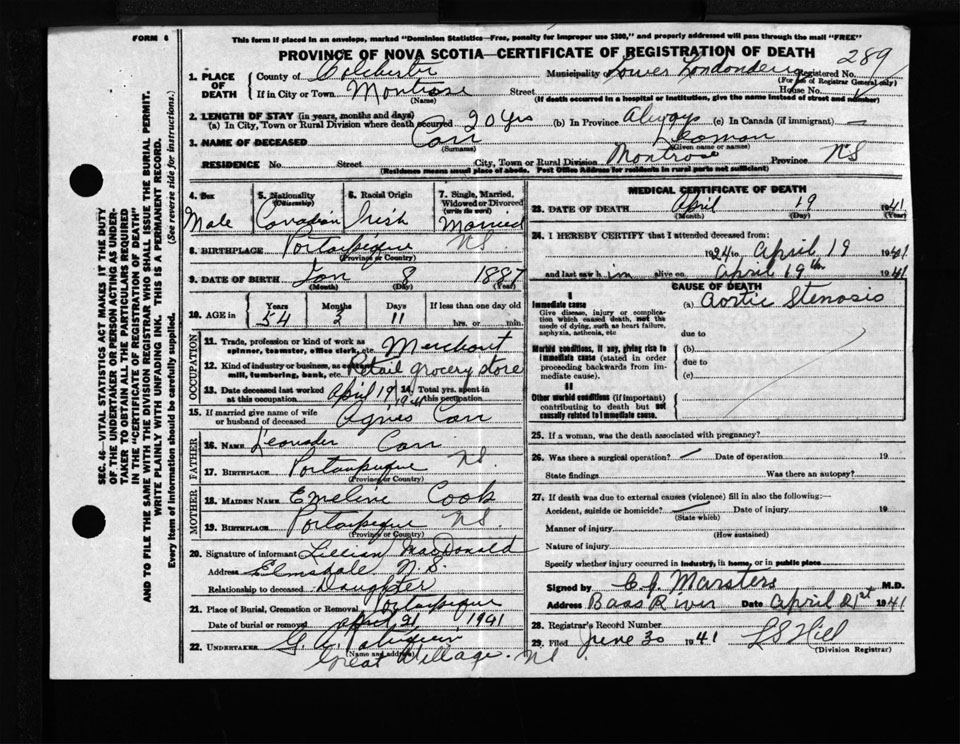 FORM 6
This form if placed in an envelope, marked "Dominion Statistics—Free, penalty for improper use $300," and properly addressed will pass through the mail "FREE"
PROVINCE OF NOVA SCOTIA—CERTIFICATE OF REGISTRATION OF DEATH
289
SEC. 46—VITAL STATISTICS ACT MAKES IT THE DUTY
OF THE UNDERTAKER OR PERSON ACTING AS UNDER-
TAKER TO OBTAIN ALL THE PARTICULARS REQUIRED
IN THE "CERTIFICATE OF REGISTRATION OF DEATH"
AND TO FILE THE SAME WITH THE DIVISION REGISTRAR WHO SHALL ISSUE THE BURIAL PERMIT.
WRITE PLAINLY WITH UNFADING INK. THIS IS A PERMANENT RECORD.
Every item of information should be carefully supplied. (See reverse side for instructions.)
1. PLACE OF DEATH
County of Colchester Municipality of Lower Londonderry Registered No.
(For use of Registrar General only)
If in City or Town Montrose Street House No.
(Name) (If death occurred in a hospital or institution, give the name instead of street and number)
2. LENGTH OF STAY (in years, months and days)
(a) In City, Town or Rural Division where death occurred 20 yrs (b) In Province Always (c) In Canada (if immigrant) —
3. NAME OF DECEASED Carr Leaman
(Surname) (Given name or names)
RESIDENCE No. Street City, Town or Rural Division Montrose Province NS
(Residence means usual place of abode. Post Office Address for residents in rural parts not sufficient)
4. Sex Male
5. Nationality (Citizenship) Canadian
6. Racial Origin Irish
7. Single, Married, Widowed or Divorced (write the word) Married
8. BIRTHPLACE Portaupique NS.
(Province or Country)
9. DATE OF BIRTH Jan 8 1887
(Month) (Day) (Year)
10. AGE in Years Months Days If less than one day old
54 3 11 hrs. or min.
OCCUPATION
11. Trade, profession or kind of work as spinner, teamster, office clerk, etc. Merchant
12. Kind of industry or business, as cotton mill, lumbering, bank, etc. Retail grocery store
13. Date deceased last worked at this occupation April 19 1941
14. Total yrs. spent in this occupation
15. If married give name of wife or husband of deceased Agnes Carr
FATHER
16. Name Leander Carr
17. Birthplace Portaupique NS.
(Province or Country)
MOTHER
18. Maiden Name Emeline Cook
19. Birthplace Portaupique NS.
(Province or Country)
20. Signature of informant Lillian MacDonald
Address Elmsdale N.S.
Relationship to deceased Daughter
21. Place of Burial, Cremation or Removal Portaupique
Date of burial or removal April 21 1941
22. UNDERTAKER
(Name and address)
Great Village. NS.
MEDICAL CERTIFICATE OF DEATH
23. DATE OF DEATH April 19 1941
(Month) (Day) (Year)
24. I HEREBY CERTIFY that I attended deceased from:
to April 19 1941
and last saw him alive on April 19th 1941
CAUSE OF DEATH
I
Immediate cause
Give disease, injury or complication which caused death, not the mode of dying, such as heart failure, asphyxia, asthenia, etc
(a) Aortic Stenosis
due to
Morbid conditions, if any, giving rise to immediate cause (stated in order proceeding backwards from immediate cause).
(b)
due to
(c)
II
Other morbid conditions (if important) contributing to death but not causally related to immediate cause.
25. If a woman, was the death associated with pregnancy?
26. Was there a surgical operation? — Date of operation 19
State findings Was there an autopsy?
27. If death was due to external causes (violence) fill in also the following:—
Accident, suicide or homicide? — Date of injury 19
(State which)
Manner of injury
(How sustained)
Nature of injury
Specify whether injury occurred in industry, in home, or in public place
Signed by C. J. Marsters M.D.
Address Bass River Date April 21st 1941
28. Registrar's Record Number
29. Filed June 30 1941 L S Hill
(Division Registrar)